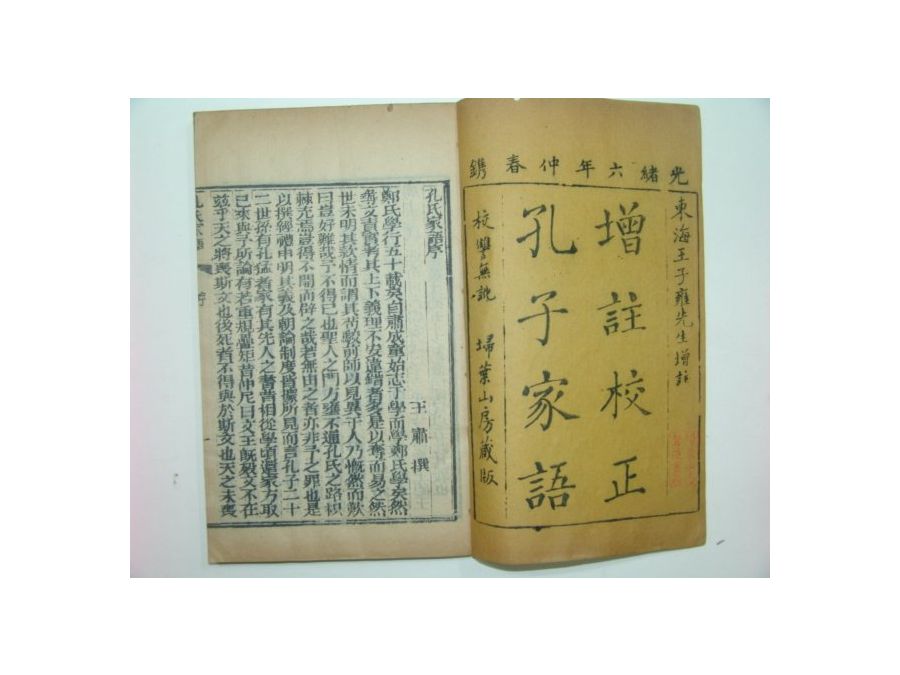 光緒六年仲春鐫
東海王子雍先生增註
增註校正
孔子家語
校讐無訛 埽葉山房藏版
孔氏家語序
王肅撰
鄭氏學行五十載矣自肅成童始志于學而學鄭氏學矣然
尋文責實考其上下義理不安違錯者多是以奪而易之然
世未明其款情而謂其苟駮前師以見異于人乃慨然而歎
曰豈好難哉予不得已也聖人之門方壅不通孔氏之路枳
棘充焉豈得不開而辟之哉若無由之者亦非予之罪也是
以撰經禮申明其義及朝論制度皆據所見而言孔子二十
二世孫有孔猛者家有其先人之書昔相從學頃還家方取
已來與予所論有若重規疊矩昔仲尼曰文王旣歿文不在
兹乎天之將喪斯文也後死者不得與於斯文也天之未喪